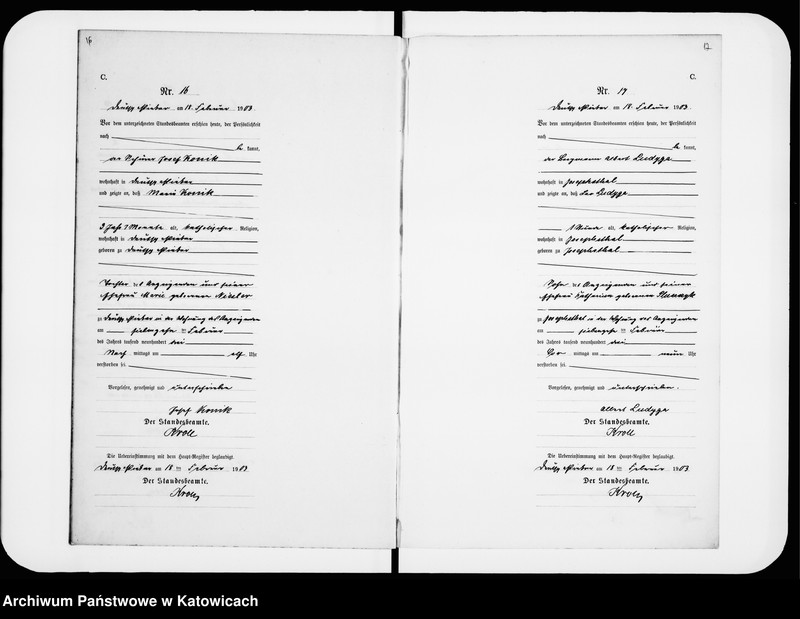 16
C.
Nr. 16
am 18. Februar 1903
Vor dem unterzeichneten Standesbeamten erschien heute, der Persönlichkeit
nach
kannt,
Josef Konik
wohnhaft in Deutsch
und zeigte an, daß Marie Konik
3 Jahr 7 Monate alt, katholischer Religion,
wohnhaft in Deutsch
geboren zu Deutsch
Tochter des Anzeigenden und seiner
Ehefrau Marie geborene
zu Deutsch in der Wohnung des Anzeigenden
am siebzehnten Februar
des Jahres tausend neunhundert drei
Nach mittags um elf Uhr
verstorben sei.
Vorgelesen, genehmigt und unterschrieben
Josef Konik
Der Standesbeamte.
Kroll
Die Uebereinstimmung mit dem Haupt-Register beglaubigt.
am 18 ten Februar 1903
Der Standesbeamte.
Kroll
17
C.
Nr. 17
am 18. Februar 1903
Vor dem unterzeichneten Standesbeamten erschien heute, der Persönlichkeit
nach
kannt,
der Bergmann Albert Ludyga
wohnhaft in Josephsthal
und zeigte an, daß Leo Ludyga
1 Stunde alt, katholischer Religion,
wohnhaft in Josephsthal
geboren zu Josephsthal
Sohn des Anzeigenden und seiner
Ehefrau Katharina geborenen
zu Josephsthal in der Wohnung des Anzeigenden
am siebzehnten Februar
des Jahres tausend neunhundert drei
Vor mittags um neun Uhr
verstorben sei.
Vorgelesen, genehmigt und unterschrieben.
Albert Ludyga
Der Standesbeamte.
Kroll
Die Uebereinstimmung mit dem Haupt-Register beglaubigt.
am 18 ten Februar 1903
Der Standesbeamte.
Kroll
Archiwum Państwowe w Katowicach